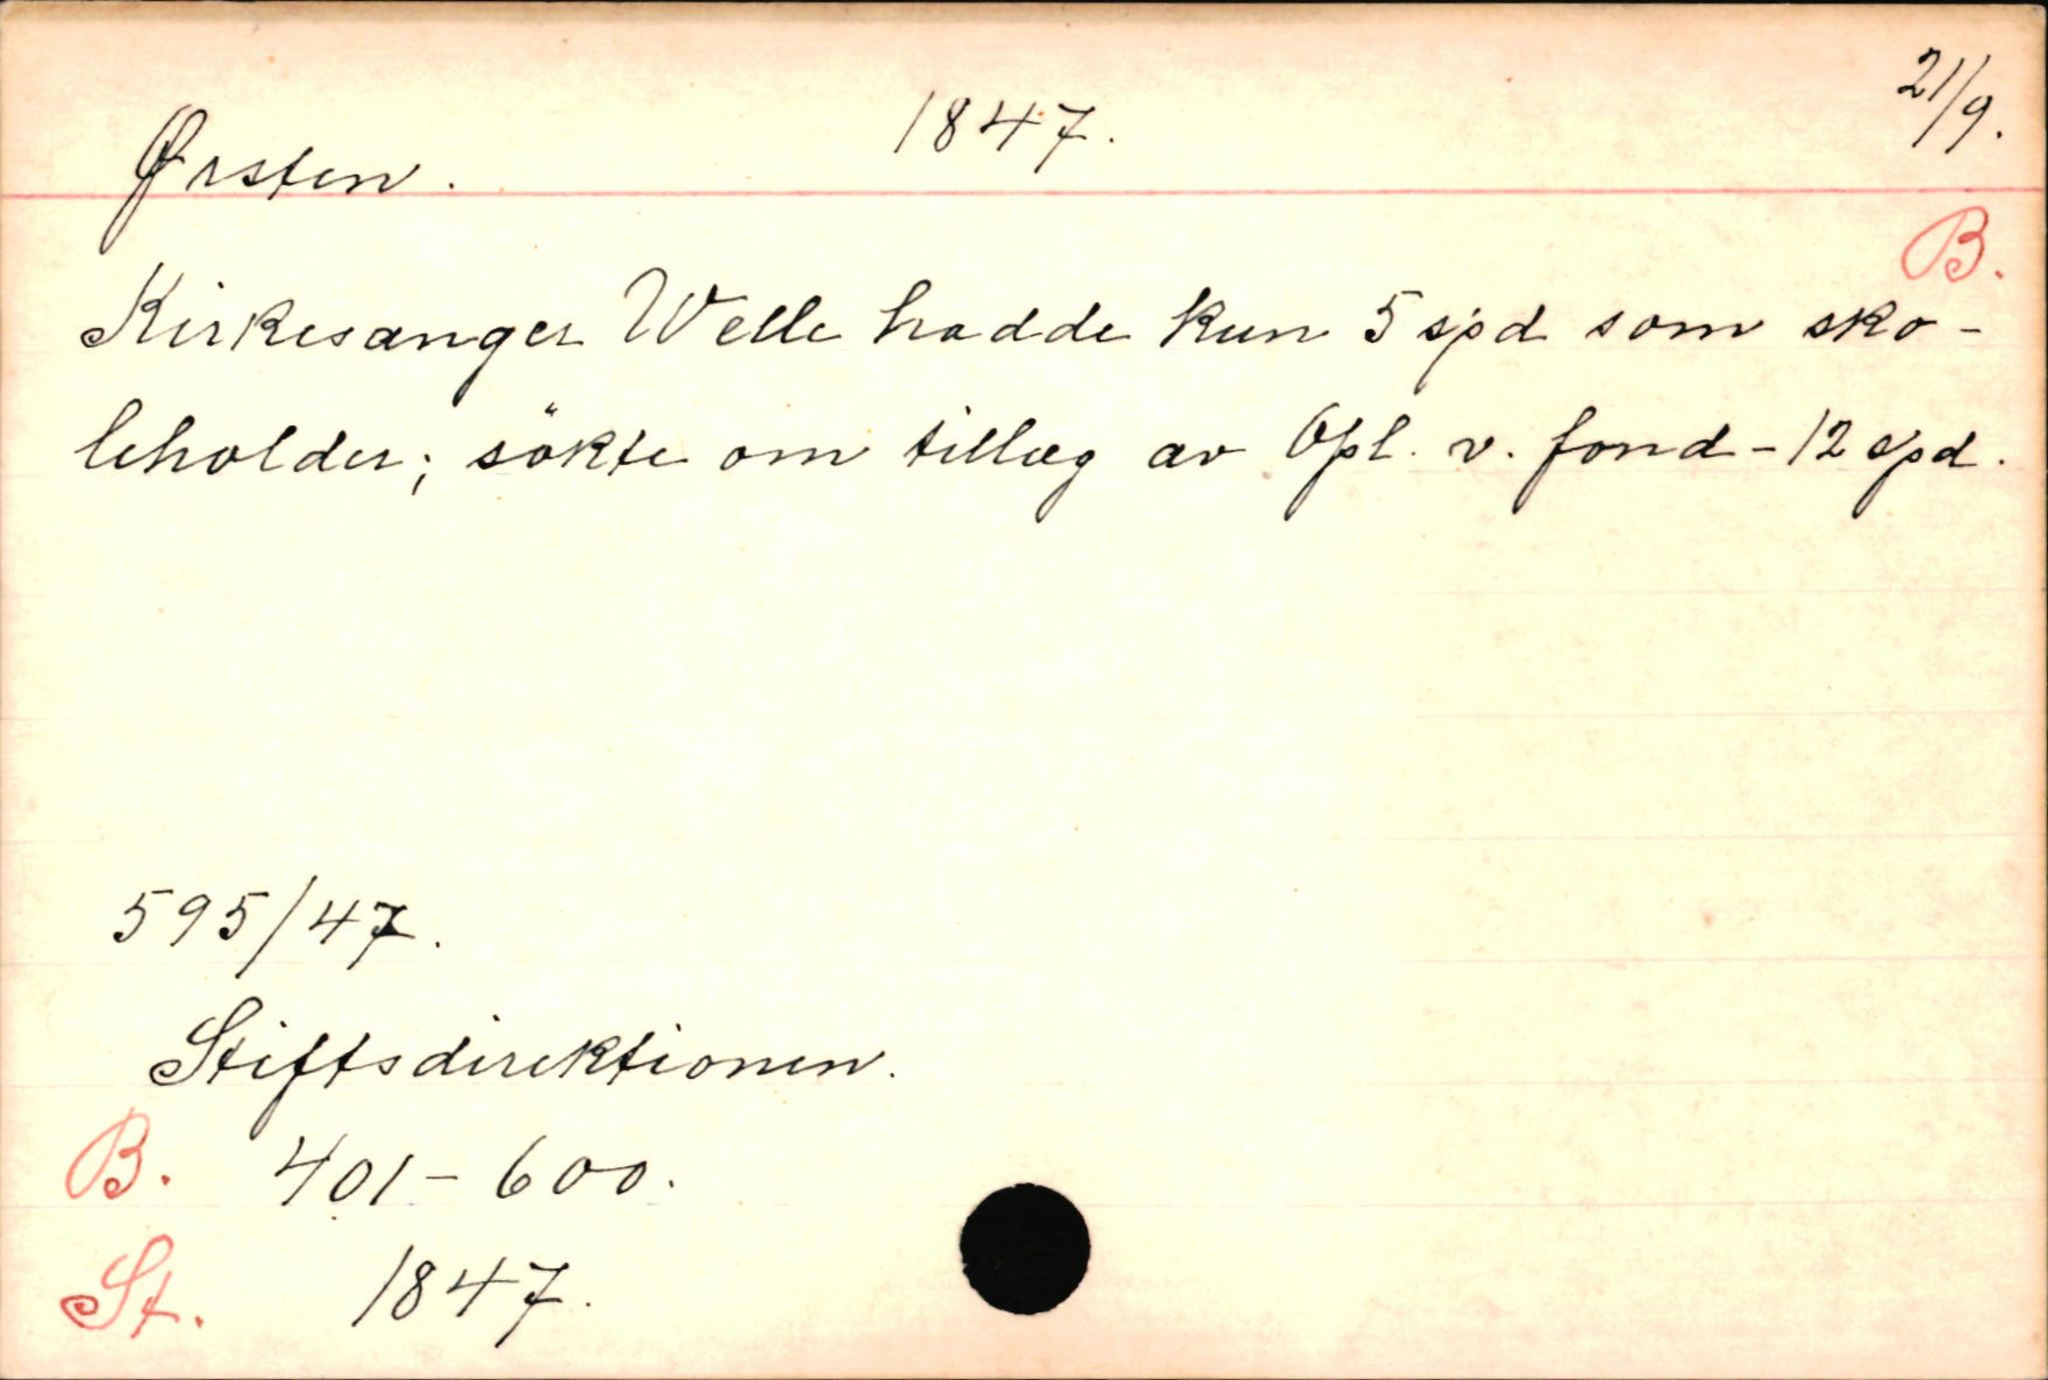 Ørsten. 1847. 21/9.
B.
Kirkesanger Welle hadde kun 5 spd som sko-
leholder; sökte om tillæg av Opl. v. fond - 12 spd.
595/47.
Stiftsdirektionen.
B. 401-600.
St. 1847.